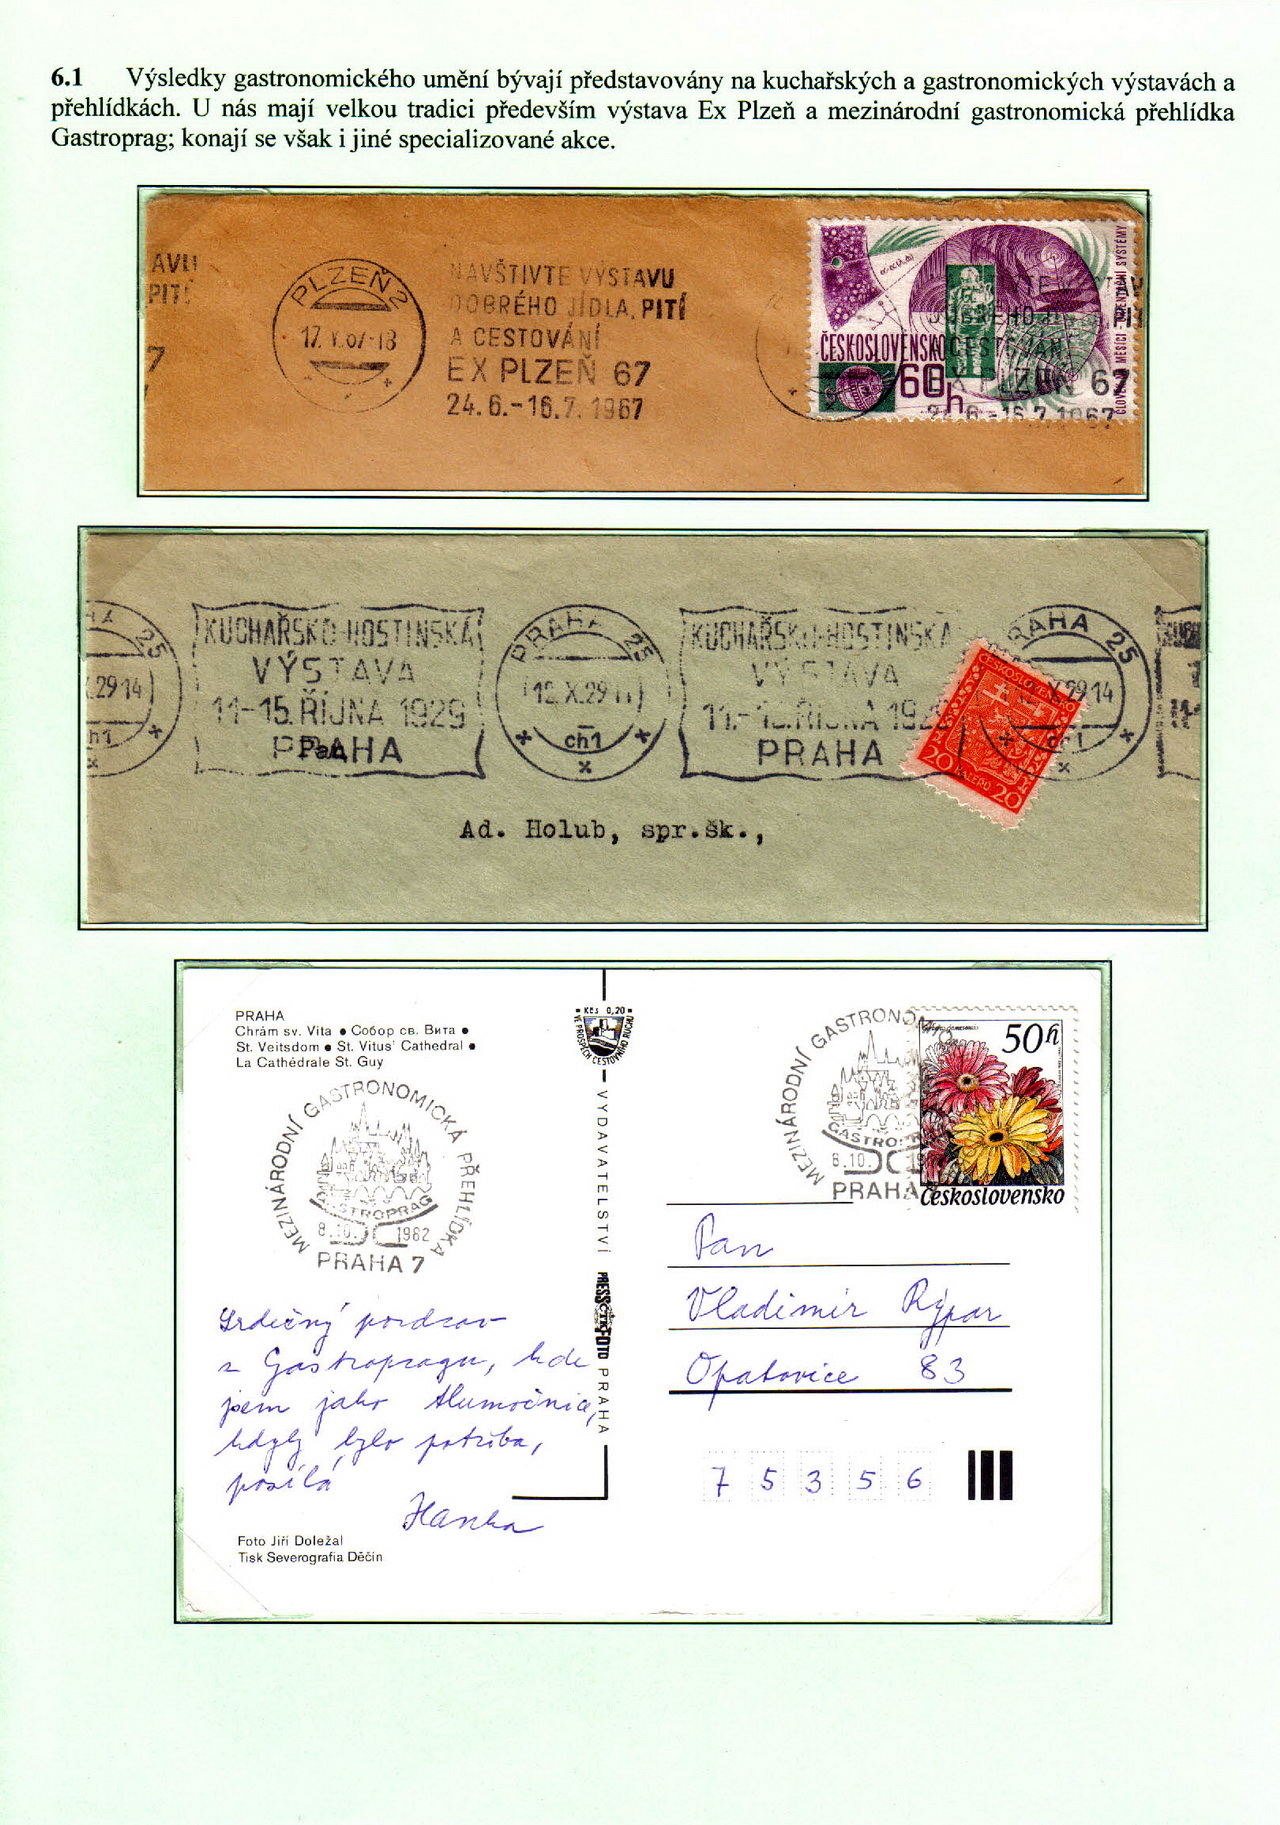 6.1 Výsledky gastronomického umění bývají představovány na kuchařských a gastronomických výstavách a
přehlídkách. U nás mají velkou tradici především výstava Ex Plzeň a mezinárodní gastronomická přehlídka
Gastroprag; konají se však i jiné specializované akce.
PITÍ
7
PLZEŇ 2
17.V.67-18
NAVŠTIVTE VÝSTAVU
DOBRÉHO JÍDLA, PITÍ
A CESTOVÁNÍ
EX PLZEŇ 67
24.6.-16.7.1967
ČESKOSLOVENSKO
60h
EX PLZEŇ 67
24.6.-16.7.1967
25
X.29 14
ch1
KUCHAŘSKO-HOSTINSKÁ
VÝSTAVA
11-15. ŘÍJNA 1929
PRAHA
Pan
PRAHA 25
12.X.29
ch1
KUCHAŘSKO-HOSTINSKÁ
VÝSTAVA
11.-15. ŘÍJNA 192
PRAHA
PRAHA 25
X.29 14
ch1
ČESKOSLOVENSKO
20 HALÉŘŮ 20
Ad. Holub, spr.šk.,
PRAHA
Chrám sv. Víta ● Собор св. Вита ●
St. Veitsdom ● St. Vitus' Cathedral ●
La Cathédrale St. Guy
MEZINÁRODNÍ GASTRONOMICKÁ PŘEHLÍDKA
GASTROPRAG
8.10. 1982
PRAHA 7
Kčs 0,20
VE PROSPĚCH CESTOVNÍHO RUCHU
VYDAVATELSTVÍ PRESSFOTO PRAHA
ČTK
MEZINÁRODNÍ GASTRONOM
GASTROPRAG
8.10. 19
PRAHA
50h
Československo
Srdečný pozdrav
z Gastropragu, kde
jsem jako tlumočnice,
kdyby bylo potřeba,
posílá
Hanka
Pan
Vladimír Rýpar
Opatovice 83
75356
Foto Jiří Doležal
Tisk Severografia Děčín